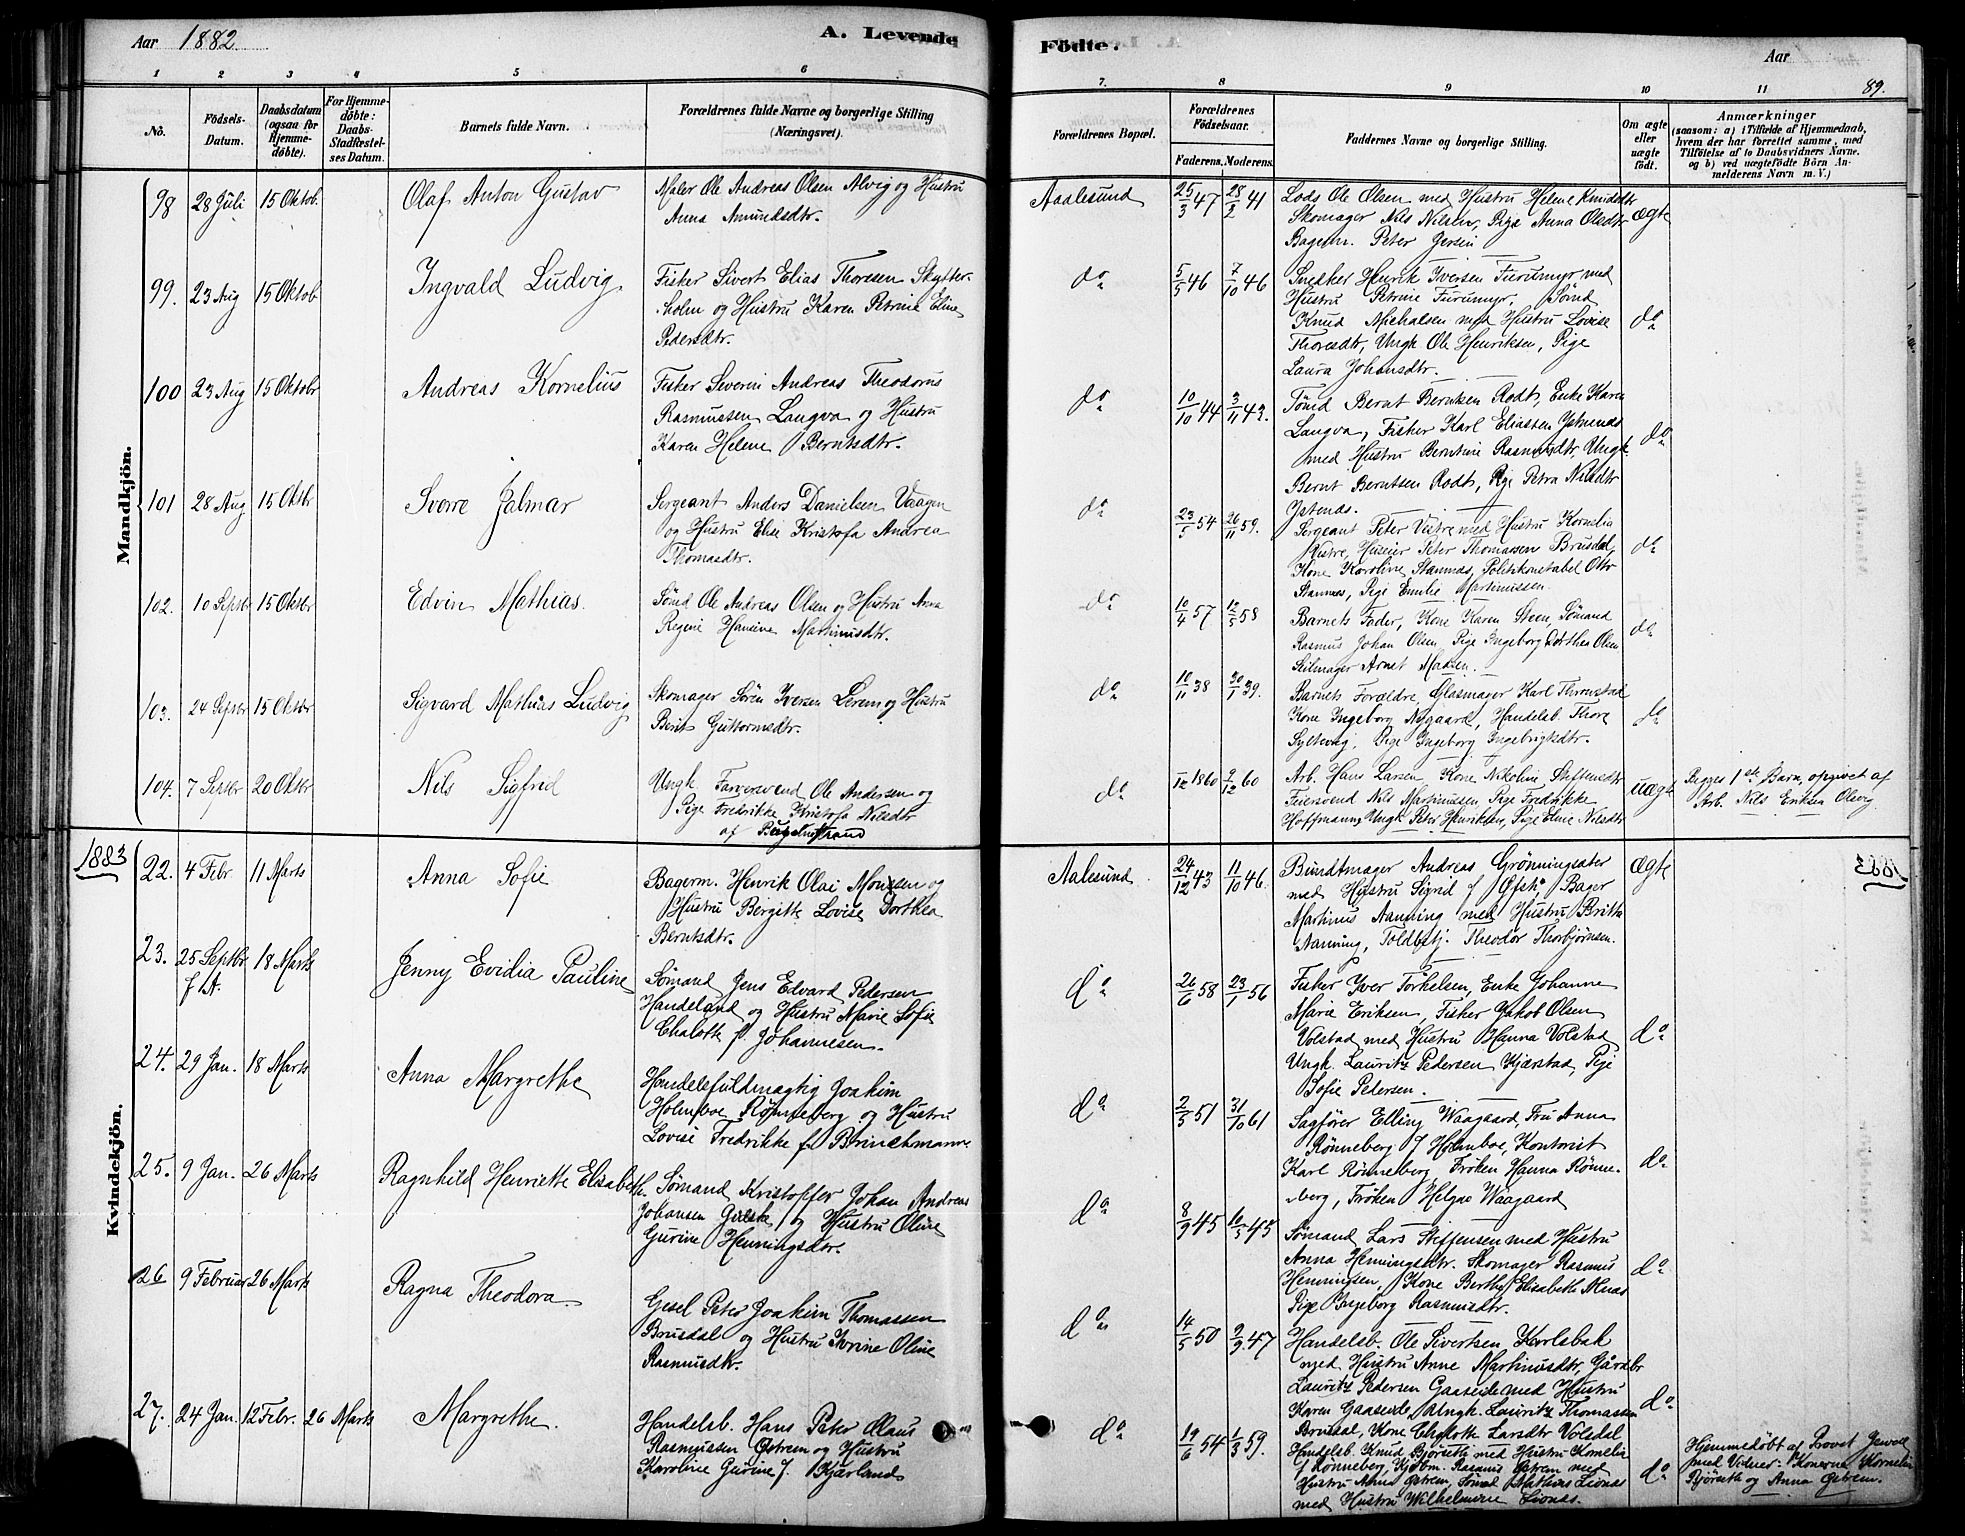 Aar 1882.
A. Levende
Födte.
Aar
89.
1 2 3 4 5 6 7. 8 9 10 11
No.
Födsels-
Datum.
Daabsdatum
(ogsaa for
Hjemme-
döbte).
For Hjemme-
döbte:
Daabs-
Stadfæstel-
ses Datum.
Barnets fulde Navn.
Forældrenes fulde Navne og borgerlige Stilling
(Næringsvei).
Forældrenes Bopæl.
Forældrenes
Födselsaar.
Faderens. Moderens.
Faddernes Navne og borgerlige Stilling.
Om ægte
eller
uægte
födt.
Anmærkninger
(saasom: a) i Tilfælde af Hjemmedaab,
hvem der har forrettet samme, med
Tilföielse af to Daabsvidners Navne.
og b) ved uægtefödte Börn An-
melderens Navn m. V.)
Mandkjön.
98 28 Juli 15 Oktob. Olaf Anton Gustav
Maler Ole Andreas Olsen Alvig og Hustru
Anna Amundsdtr.
Aalesund 25/3 47 28/2 41
Lods Ole Olsen med Hustru Helene Knuddtr
Skomager Nils Nilsen, Pige Anna Olsdtr
Bagerm. Peter Jersin
ægte
99. 23 Aug 15 Oktob Ingvald Ludvig
Fisker Sivert Elias Thoresen Skytter-
holm og Hustru Karen Petrine Eline
Pedersdtr.
do 5/5 46 7/10 46
Snedker Henrik Iversen Furumyr med
Hustru Petrine Furumyr, Sömd
Knud Michalsen med Hustru Lovise
Thoresdtr, Ungk Ole Henriksen, Pige
Laura Johansdtr.
do
100 23 Aug 15 Oktobr Andreas Kornelius
Fisker Severin Andreas Theodorus
Rasmussen Langva og Hustru
Karen Helene Berntsdtr.
do 10/10 44 3/11 43.
Sömd Bernt Berntsen Rodt, Enke Karen
Langva, Fisker Karl Eliassen Ystenes
med Hustru Berntine Rasmusdtr, Ungk.
Bernt Berntsen Rodt, Pige Petra Nilsdtr
Ystenes.
do
101 28 Aug 15 Oktbr Sverre Jalmar
Sergeant Anders Danielsen Vaagen
og Hustru Elise Kristofa Andrea
Thomasdtr.
do 23/5 54 26/11 59.
Sergeant Peter Vistre med Hustru Kornelia
Vistre, Huseier Peter Thomassen Brusdal,
Kone Karoline Stannæs, Politikonstabel Otto
Stannæs, Pige Emilie Martinussen.
do
102. 10 Septbr 15 Oktbr Edvin Mathias.
Sömd Ole Andreas Olsen og Hustru Anna
Regine Hansine Martinusdtr.
do 10/4 57 12/5 58
Barnets Fader, Kone Karen Steen, Sömand
Rasmus Johan Olsen, Pige Ingeborg Dorthea Olsen
Seilmager Arnet Madsen.
do
103. 24 Septbr 15 Oktbr Sigvard Mathias Ludvig
Skomager Sören Iversen Lerem og Hustru
Berit Guttormsdtr.
do 10/11 38 30/1 39.
Barnets Forældre, Glasmager Karl Thronstad
Kone Ingeborg Nygaard, Handelsb. Thore
Syltevig, Pige Ingeborg Ingebrigtsdtr.
do
104. 7 Septbr 20 Oktbr Nils Sigfrid
Ungk Farversvend Ole Andersen og
Pige Fredrikke Kristofa Nilsdtr
af
do /12 1860 9/12 60
Arb. Hans Larsen, Kone Nikoline Steffensdtr
Feiersvend Nils Martinussen, Pige Fredrikke
Hoffmann, Ungk Peter Henriksen, Pige Eline Nilsdtr
uægte
Begges 1ste Barn, opgivet af
Arb. Nils Eriksen Olsvig
1883
Kvindekjön.
22. 4 Febr 11 Marts Anna Sofie
Bagerm. Henrik Olai Monsen og
Hustru Bergitte Lovise Dorthea
Berntsdtr.
Aalesund 24/12 43 11/10 46.
Bundtmager Andreas Grönningsæter
med Hustru Sigrid f Öfsti, Bager
Martinus Aanning med Hustru Britta
Aanning, Toldbetj. Theodor Thorbjörnsen.
Ægte
1883
23. 25 Septbr f.A. 18 Marts Jenny Evidia Pauline
Sömand Jens Edvard Pedersen
Handeland og Hustru Marie Sofie
Chalotte f. Johannesen.
do 26/6 58 23/1 56
Fisker Iver Torkelsen, Enke Johanne
Marie Eriksen, Fisker Jakob Olsen
Volstad med Hustru Hanna Volstad
Ungk. Lauritz Pedersen Kjærstad, Pige
Sofie Pedersen.
do
24. 29 Jan. 18 Marts Anna Margrethe
Handelsfuldmægtig Joakim
Holmboe Rönneberg og Hustru
Lovise Fredrikke f Brinchmann
do 2/3 51 31/10 61
Sagförer Elling Waagaard, Fru Anna
Rönneberg f Holmboe, Kontorist
Karl Rönneberg, Fröken Hanna Rönne-
berg, Fröken Helga Waagaard
do
25. 9 Jan. 26 Marts Ragnhild Henriette Elisabeth.
Sömand Kristoffer Johan Andreas
Johansen og Hustru Oline
Gurine Henningsdtr.
do 8/9 45 10/3 45
Sömand Lars Steffensen med Hustru
Anna Henningsdtr. Skomager Rasmus
Henningsen, Kone Berthe Elisabeth Alnæs
Pige Ingeborg Rasmusdtr.
do
26 9 Februar 26 Marts Ragna Theodora.
Gesel Peter Joakim Thomassen
Brusdal og Hustru Ivrine Oline
Rasmusdtr.
do 14/5 50 2/9 47
Handelsb. Ole Sivertsen Karlsbak
med Hustru Anne Martinusdtr, Gårdbr
Lauritz Pedersen Gaaseide med Hustru
Karen Gaaseide, Ungk. Lauritz Thomassen
Brusdal, Kone Chalotte Larsdtr Volsdal
do
27. 24 Jan. 12 Febr. 26 Marts Margrethe.
Handelsb. Hans Peter Olaus
Rasmussen Östrem og Hustru
Karoline Gurine f. Kjærland
do 19/6 54 1/3 59.
Handelsb. Knud Björseth med Hustru Kornelia
f Rönneberg, Kjöbm. Rasmus Östrem med
Hustru Anna Östrem, Sömd Mathias Lionæs
med Hustru Wilhelmine Lionæs.
do
Hjemmedöbt af Provst Jervell
med Vidner: Konerne Kornelia
Björseth og Anna Östrem.